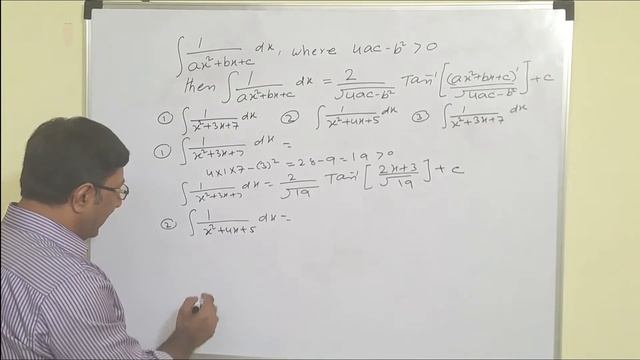 ∫ 1/(ax²+bx+c) dx, where 4ac-b² > 0
then ∫ 1/(ax²+bx+c) dx = 2/√4ac-b² Tan⁻¹ [(ax²+bx+c)'/√4ac-b²] + c
① ∫ 1/(x²+3x+7) dx ② ∫ 1/(x²+4x+5) dx ③ ∫ 1/(x²+3x+7) dx
① ∫ 1/(x²+3x+7) dx =
4x1x7-(3)² = 28-9 = 19 > 0
∫ 1/(x²+3x+7) dx = 2/√19 Tan⁻¹ [2x+3/√19] + c
② ∫ 1/(x²+4x+5) dx =